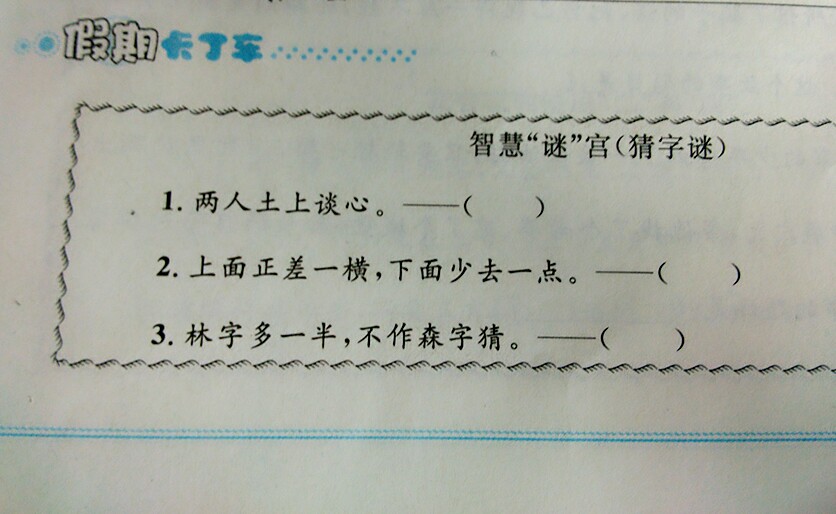 假期卡丁车
智慧“谜”宫(猜字谜)
1. 两人土上谈心。——(　　)
2. 上面正差一横,下面少去一点。——(　　)
3. 林字多一半,不作森字猜。——(　　)